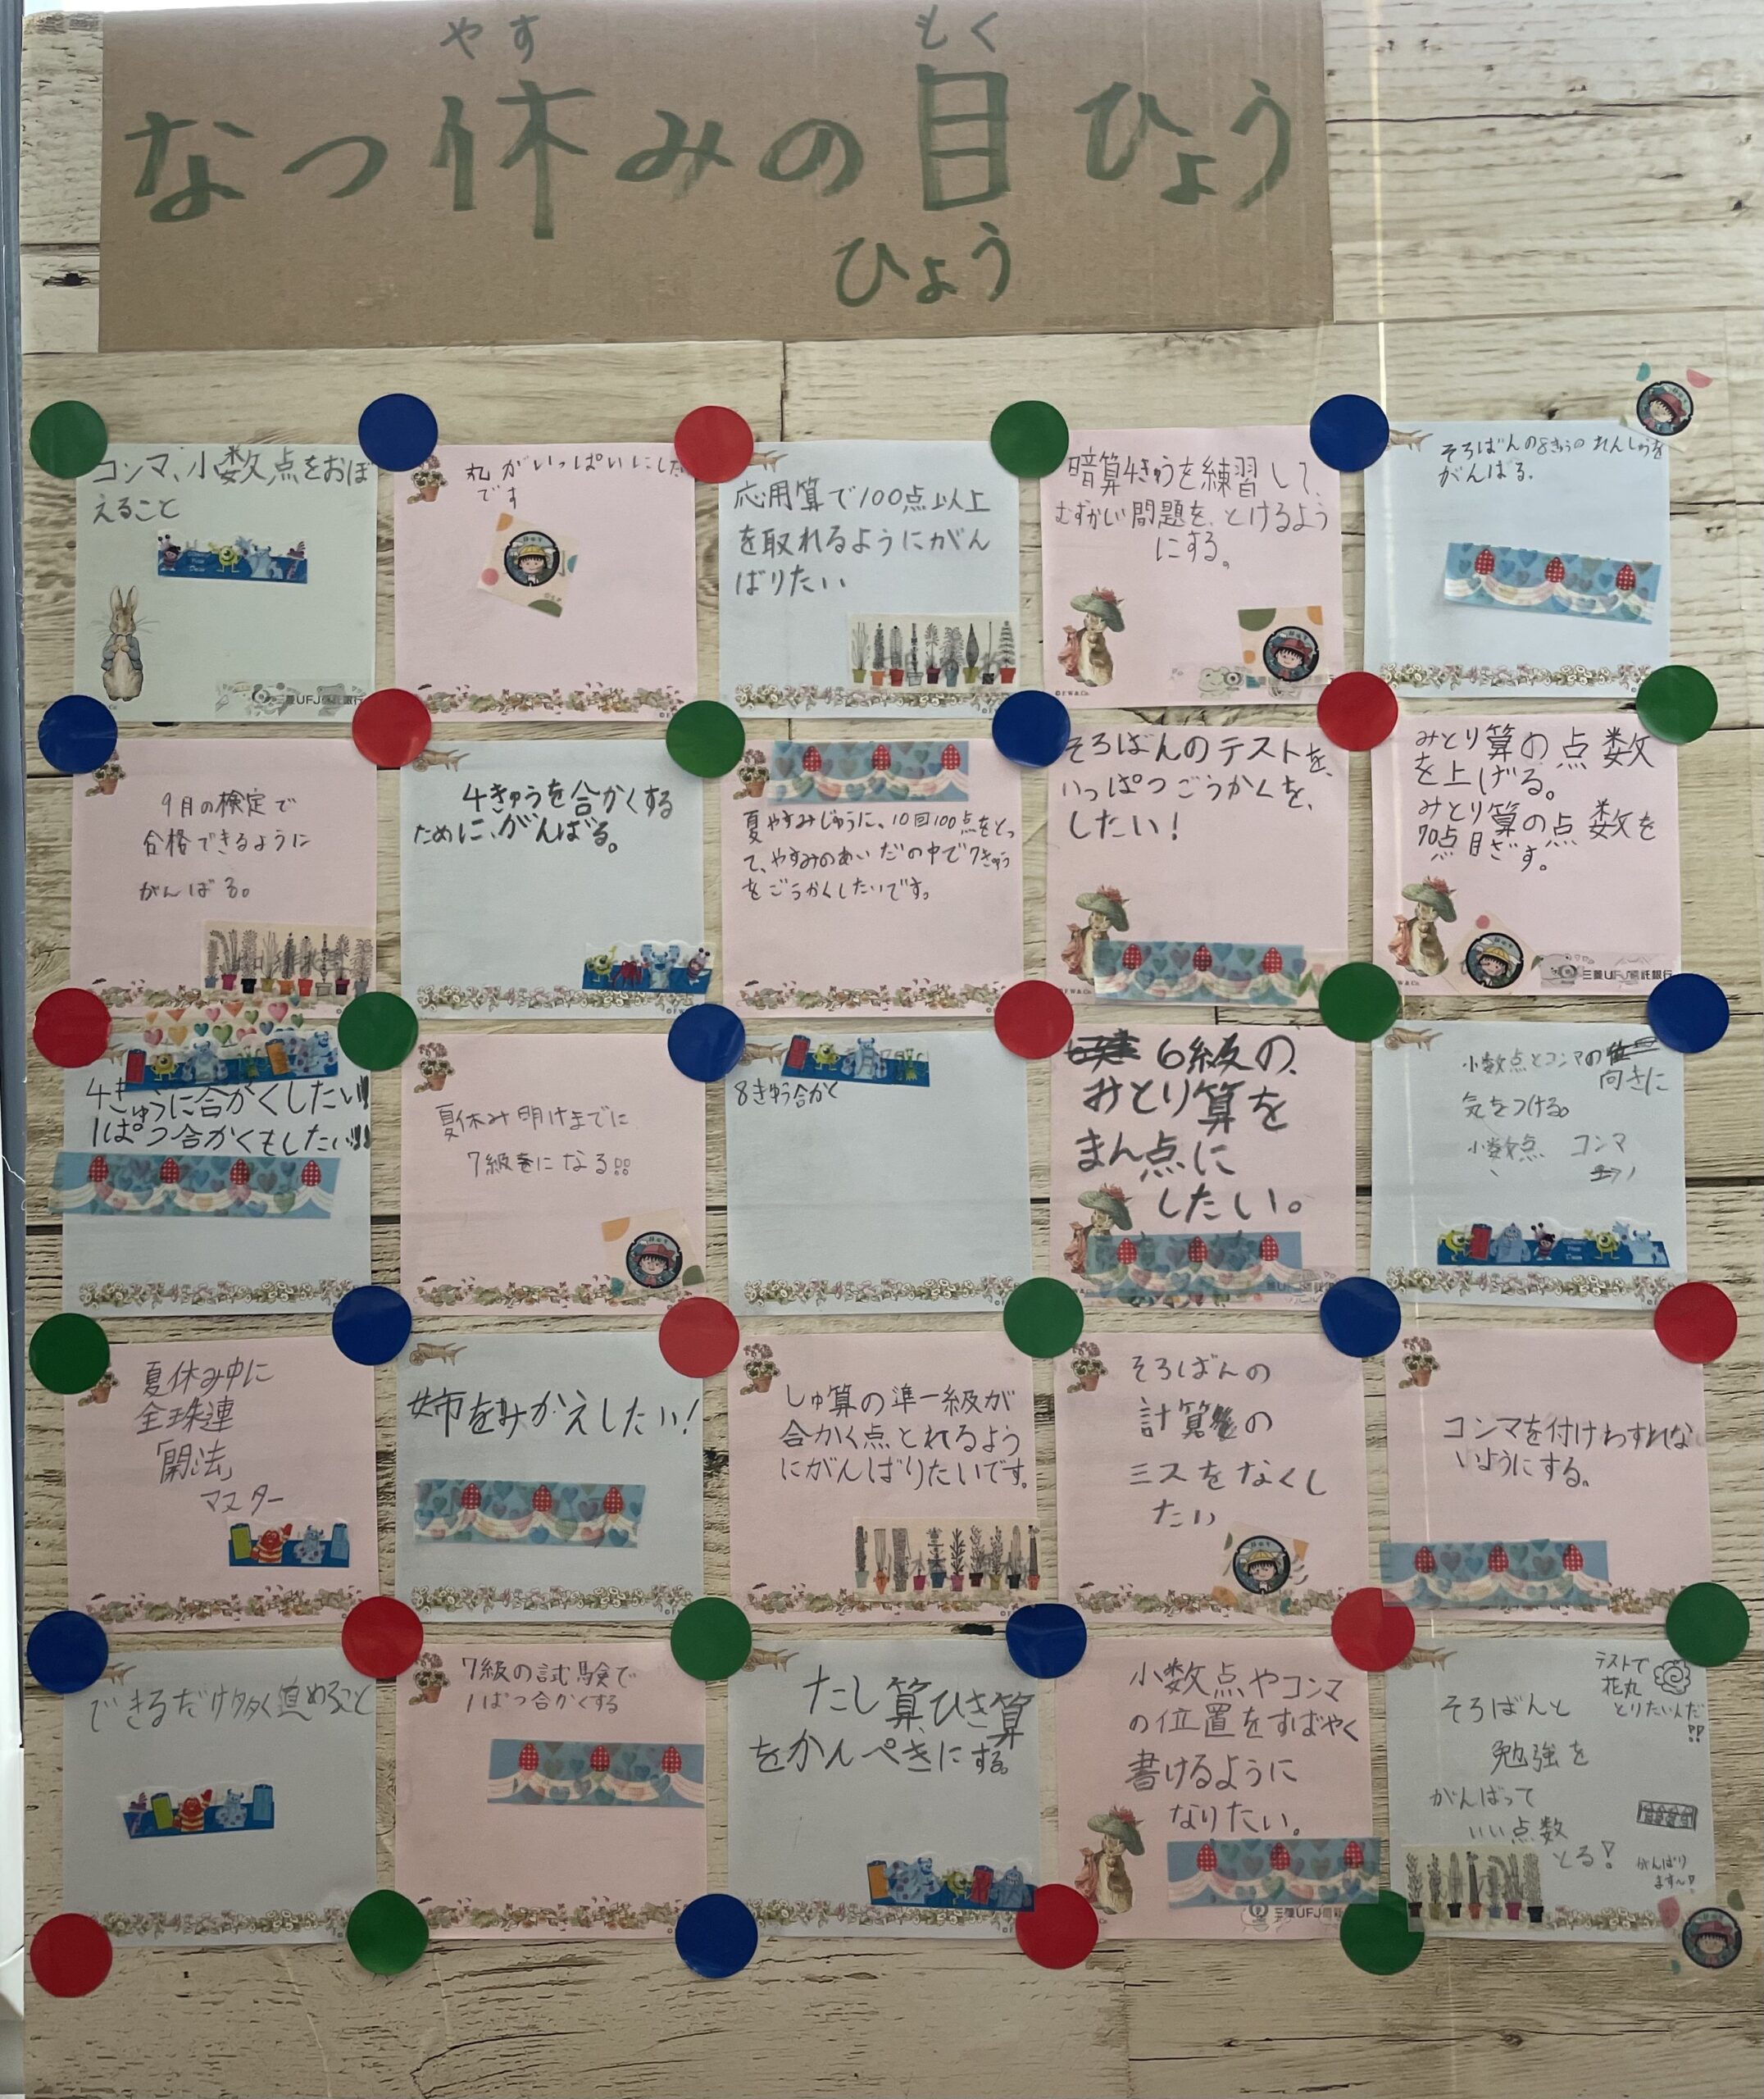 やす
もく
なつ休みの目ひょう
ひょう
コンマ、小数点をおぼ
えること
三菱UFJ信託銀行
丸がいっぱいにした
です
応用算で100点以上
を取れるようにがん
ばりたい
暗算4きゅうを練習して、
むずかしい問題を、とけるよう
にする。
そろばんの8きゅうのれんしゅうを
がんばる。
9月の検定で
合格できるように
がんばる。
4きゅうを合かくする
ために、がんばる。
夏やすみじゅうに、10回100点をとっ
て、やすみのあいだの中で7きゅう
をごうかくしたいです。
そろばんのテストを、
いっぱつごうかくを、
したい!
みとり算の点数
を上げる。
みとり算の点数を
70点目ざす。
三菱UFJ信託銀行
4きゅうに合かくしたい!!
1ぱつ合かくもしたい!!!
夏休み明けまでに
7級になる!!
8きゅう合かく
6級の、
みとり算を
まん点に
したい。
小数点とコンマの
向きに
気をつける。
小数点 コンマ
夏休み中に
全珠連
「開法」
マスター
姉をみかえしたい!
しゅ算の準一級が
合かく点とれるよう
にがんばりたいです。
そろばんの
計算の
ミスをなくし
たい
コンマを付けわすれな
いようにする。
できるだけ多く進めること
7級の試験で
1ぱつ合かくする
たし算、ひき算
をかんぺきにする。
小数点やコンマ
の位置をすばやく
書けるように
なりたい。
三菱UFJ信託
テストで
花丸
とりたいんだ!!
そろばんと
勉強を
がんばって
いい点数
とる!
がんばり
ます〜!